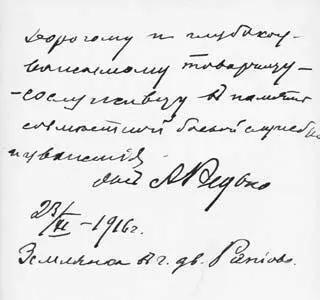 Дорогому и глубоко-
уважаемому товарищу-
-сослуживцу в память
совместной боевой службы
и уважения
А Редько
23/XI – 1916 г.
Землянка